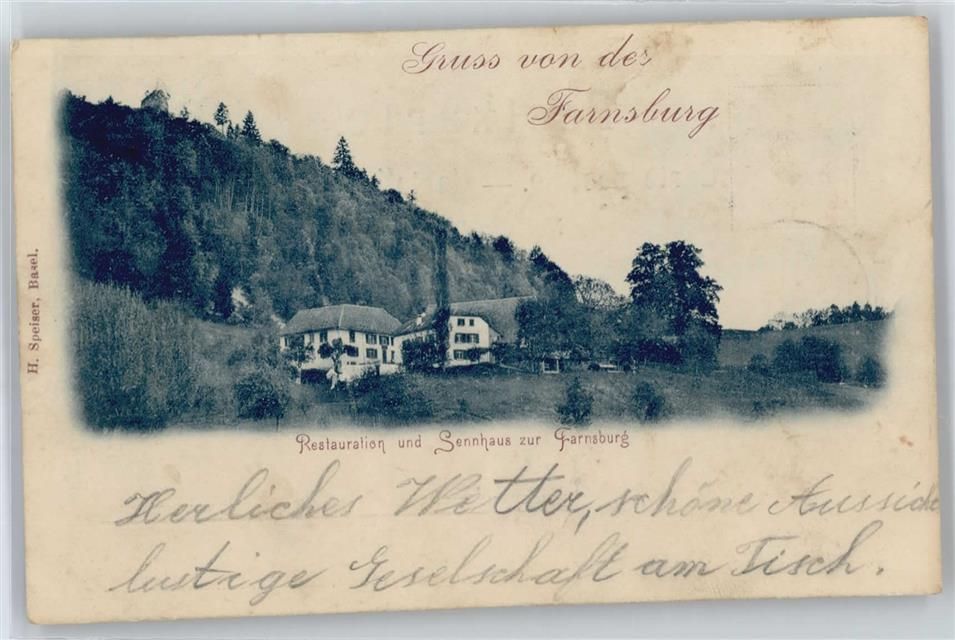 Gruss von der
Farnsburg
H. Speiser, Basel.
Restauration und Sennhaus zur Farnsburg
Herliches Wetter, schöne Aussicht
lustige Geselschaft am Tisch.